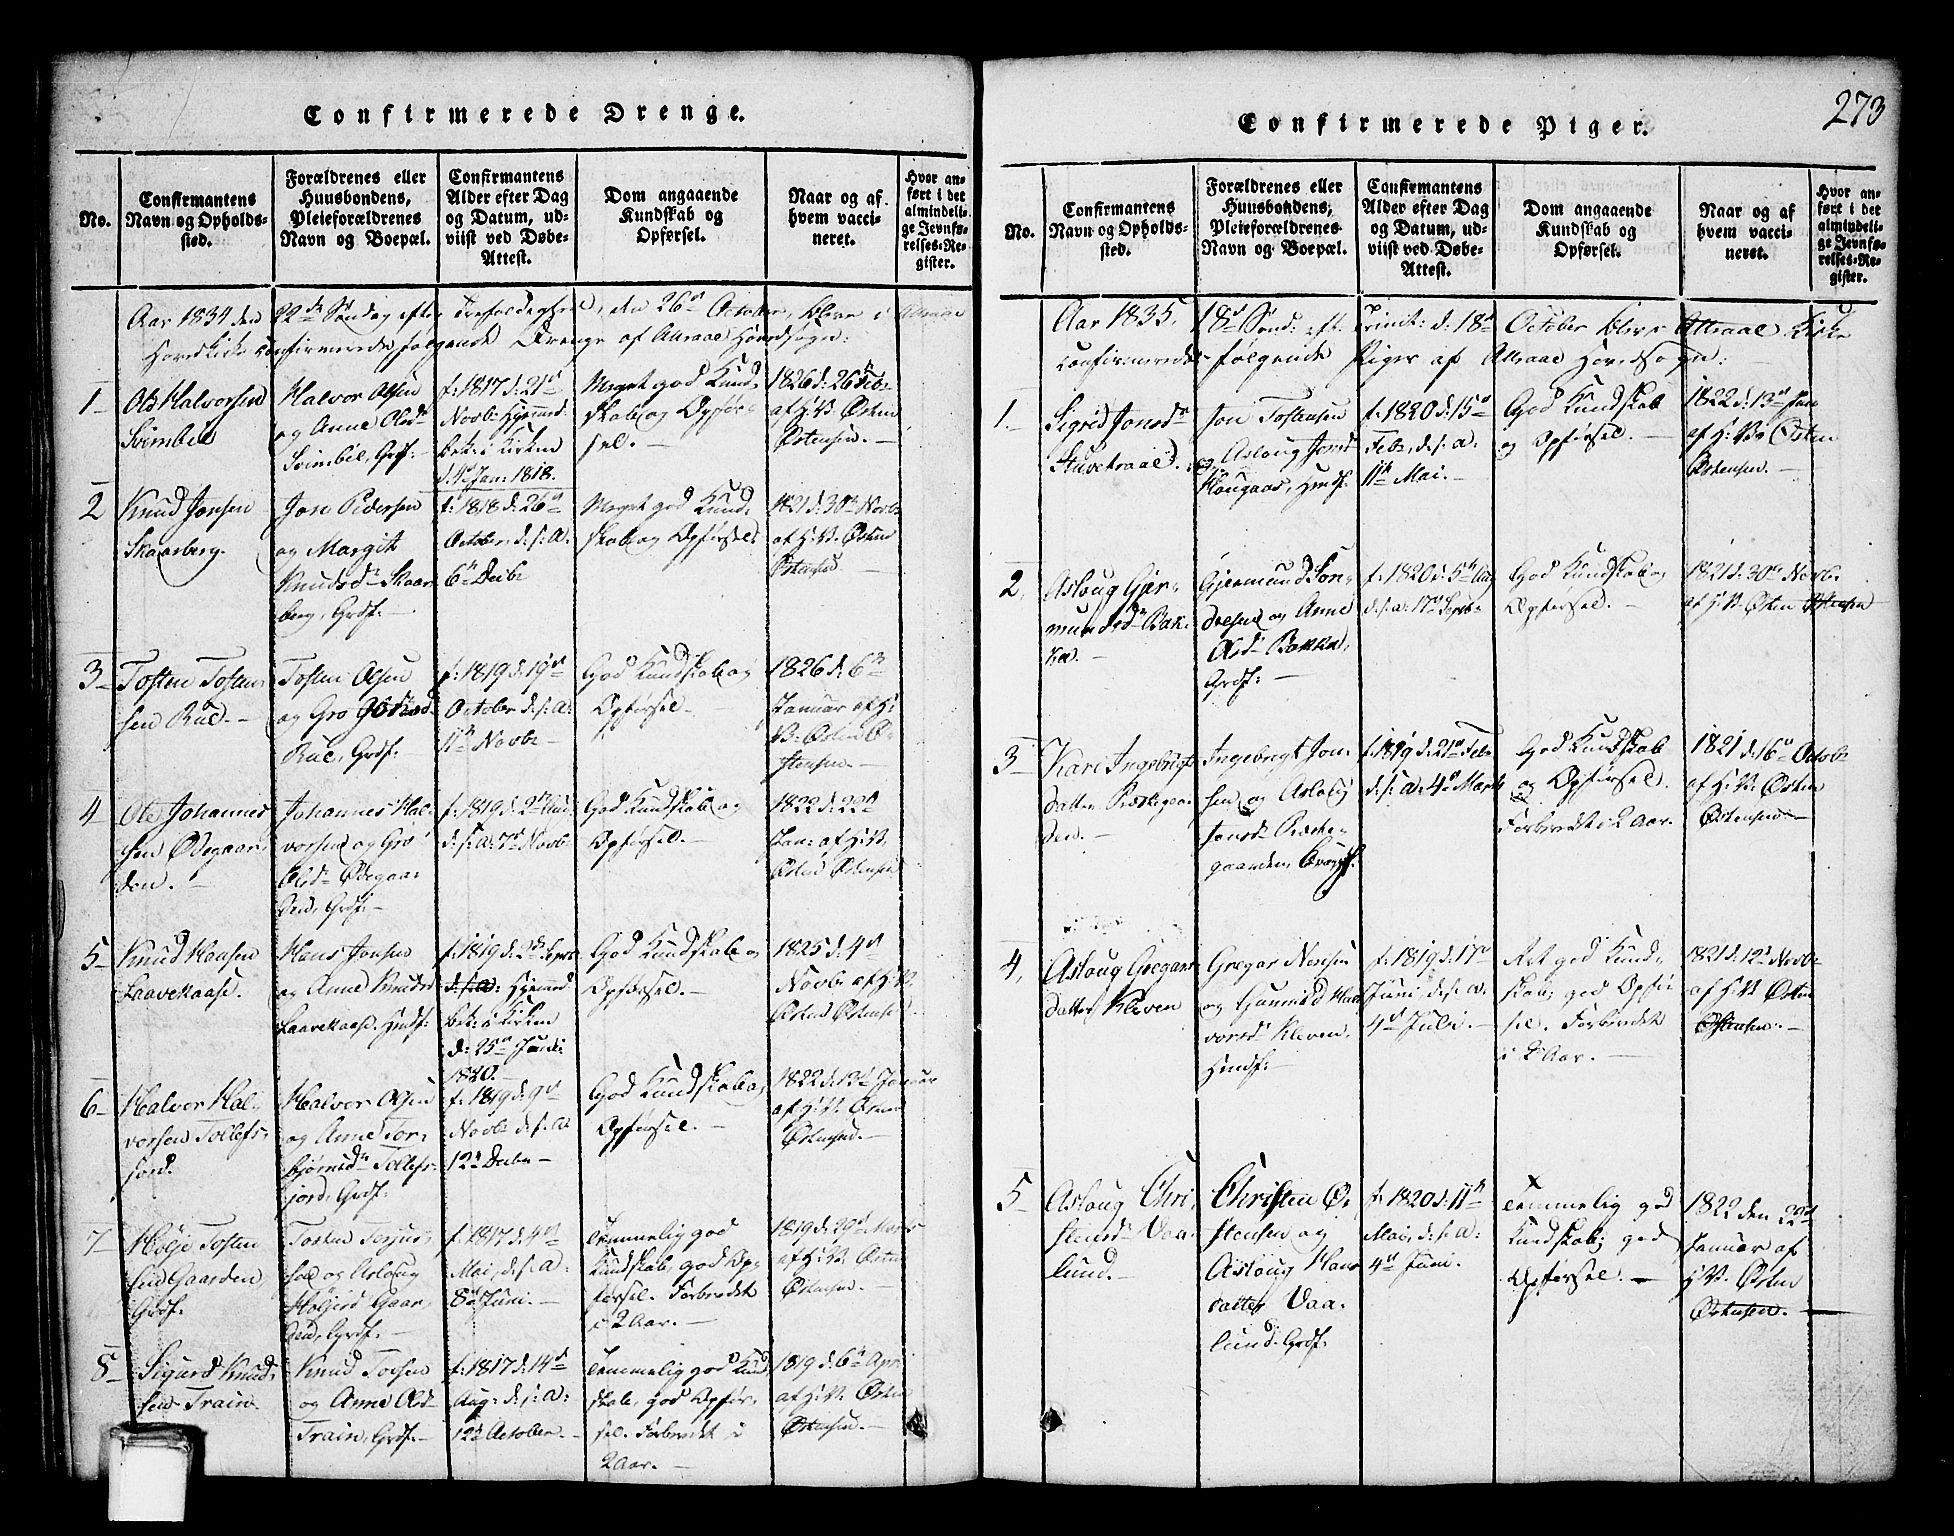 Confirmerede Drenge.
No.
Confirmantens
Navn og Opholds-
sted.
Forældrenes eller
Huusbondens,
Pleieforældrenes
Navn og Boepæl.
Confirmantens
Alder efter Dag
og Datum, ud-
viist ved Døbe-
Attest.
Dom angaaende
Kundskab og
Opførsel.
Naar og af
hvem vacci-
neret.
Hvor an-
ført i det
almindeli-
ge Jevnfø-
relses-Re-
gister.
Aar 1834 den 22de Søndag efter Trefoldighed, den 26de October, bleve i Attraae
Hovedkirke confirmerede følgende Drenge af Attraae Hovedsogn:
1
Ole Halvorsen
Svimbil
Halvor Olsen
og Anne Olsd
Svimbil, Grdf:
f: 1817 d: 21
Novb: Hjemmed:
bek: i Kirken
d. 4 Jan: 1818.
Meget god Kund-
skab og Opfør-
sel. —
1826 d: 26 Feb:
af H: B: Østen
Østensen. —
2
Knud Jonsen
Skaarberg
Jon Pedersen
og Margit
Knudsd Skaar-
berg, Grdf: —
f: 1818 d: 26
October, d: s: a:
6 Decbr
Meget god Kund-
skab og Opførsel.
1821 d: 30 Novbr
af H: B: Østen
Østensen
3
Tosten Tosten-
sen Rue. —
Tosten Olsen
og Gro
Rue, Grdf: —
f: 1819 d: 19
October d: s: a:
11 Novbr
God Kundskab og
Opførsel. —
1826 d: 6
Januar af H:
B: Østen Ø-
stensen. —
4
Ole Johannes-
sen Ødegaar-
den. —
Johannes Hal-
vorsen og Gro
Olsd Ødegaar-
den, Grdf: —
f: 1819 d: 2 Aug
d: s: a: 7 Novbr
God Kundskab og
Opførsel. —
1822 d: 22
Jan: af H: B:
Østen Østensen
5
Knud Hansen
Laavekaase.
Hans Jonsen
og Anne Knudsd
Laavekaase. Hmdf:
f: 1819 d: 2 Septbr
d: s: a: Hjemmed
bek: i Kirken
d: 25 Juni
1820. —
God Kundskab og
Opførsel. —
1825 d: 4
Novbr af H: B:
Østen Østensen
6
Halvor Hal-
vorsen Tollefs-
jord.
Halvor Olsen
og Anne Tor-
bjørnsd Tollefs-
jord, Grdf: —
f: 1819 d: 9
Novbr d: s: a:
12 Decbr —
God Kundskab og
Opførsel. —
1822 d: 13 Januar
af H: B: Østen
Østensen. —
7
Høljе Tosten-
sen Gaarden,
Grdf.
Tosten Torjus-
sen og Asloug
Høljesd Gaar-
den, Grdf: —
f: 1817 d: 4
Mai, d: s: a:
8 Juni. —
Temmelig god
Kundskab, god Op-
førsel. Forberedet
i 2 Aar. —
1819 d: 29
af H: B: Østen
Østensen. —
8
Sigurd Knud-
sen Train
Knud
og Anne Olsd
Train, Grdf: —
f: 1817 d: 14
Aug: d: s: a:
12 October. —
Temmelig god Kund-
skab, god Opfør-
sel. Forberedet i
2 Aar. —
1819 d: 6 Apr
af H: B: Østen
Østensen. —
273
Confirmerede Piger.
No.
Confirmantens
Navn og Opholds-
sted.
Forældrenes eller
Huusbondens,
Pleieforældrenes
Navn og Boepæl.
Confirmantens
Alder efter Dag
og Datum, ud-
viist ved Døbe-
Attest.
Dom angaaende
Kundskab og
Opførsel.
Naar og af
hvem vacci-
neret.
Hvor an-
ført i det
almindeli-
ge Jevnfø-
relses-Re-
gister.
Aar 1835, 18 Sønd: eft: Trinit: d: 18 October bleve i Attraae Kirke
confirmerede følgende Piger af Attraae Hovedsogn:
1.
Sigrid Jonsd
Stuvekraae
Jon Tostensen
og Asloug Jonsd
Haugaas, Hmdf:
f: 1820 d: 15
Feb:, d: s: a:
11 Mai. —
God Kundskab
og Opførsel. —
1822 d: 13 Jan
af H: B: Østen
Østensen. —
2.
Asloug Gjer-
mundsd Bak-
ken. —
Gjermund Son-
dresen og Anne
Olsd Bakken,
Grdf: —
f: 1820 d: 5 Aug
d: s: a: 17 Septbr
God Kundskab og
Opførsel. —
1821 d: 30 Novbr
af H: B: Østen Østensen
3
Kari Ingebrigts-
datter Præstegaar-
den. —
Ingebrigt Jon-
sen og Asloug
Jonsd Præste-
gaarden,
f: 1819 d: 21 Feb:
d: s: a: 4 Marts
God Kundskab
og Opførsel.
Forberedt i 2 Aar.
1821 d: 16 Octobr
af H: B: Østen
Østensen —
4,
Asloug Gregars-
datter Kleven
Gregar Nensen
og Gunnild Hal-
vorsd Kleven,
Hmdf: —
f: 1819 d: 17
Juni, d: s: a:
4 Juli —
Ret god Kund-
skab; god Opfør-
sel. Forberedet
i 2 Aar. —
1821 d: 12 Novbr
af H: B: Østen
Østensen. —
5
Asloug Chri-
stensd Vaa-
lund. —
Christen Ø-
stensen og
Asloug Hans-
datter Vaa-
lund. Grdf.
f: 1820 d: 11
Mai, d: s: a:
4 Juni. —
Temmelig god
Kundskab; god
Opførsel. —
1822 den 22
Januar af
H: B: Østen
Østensen. —